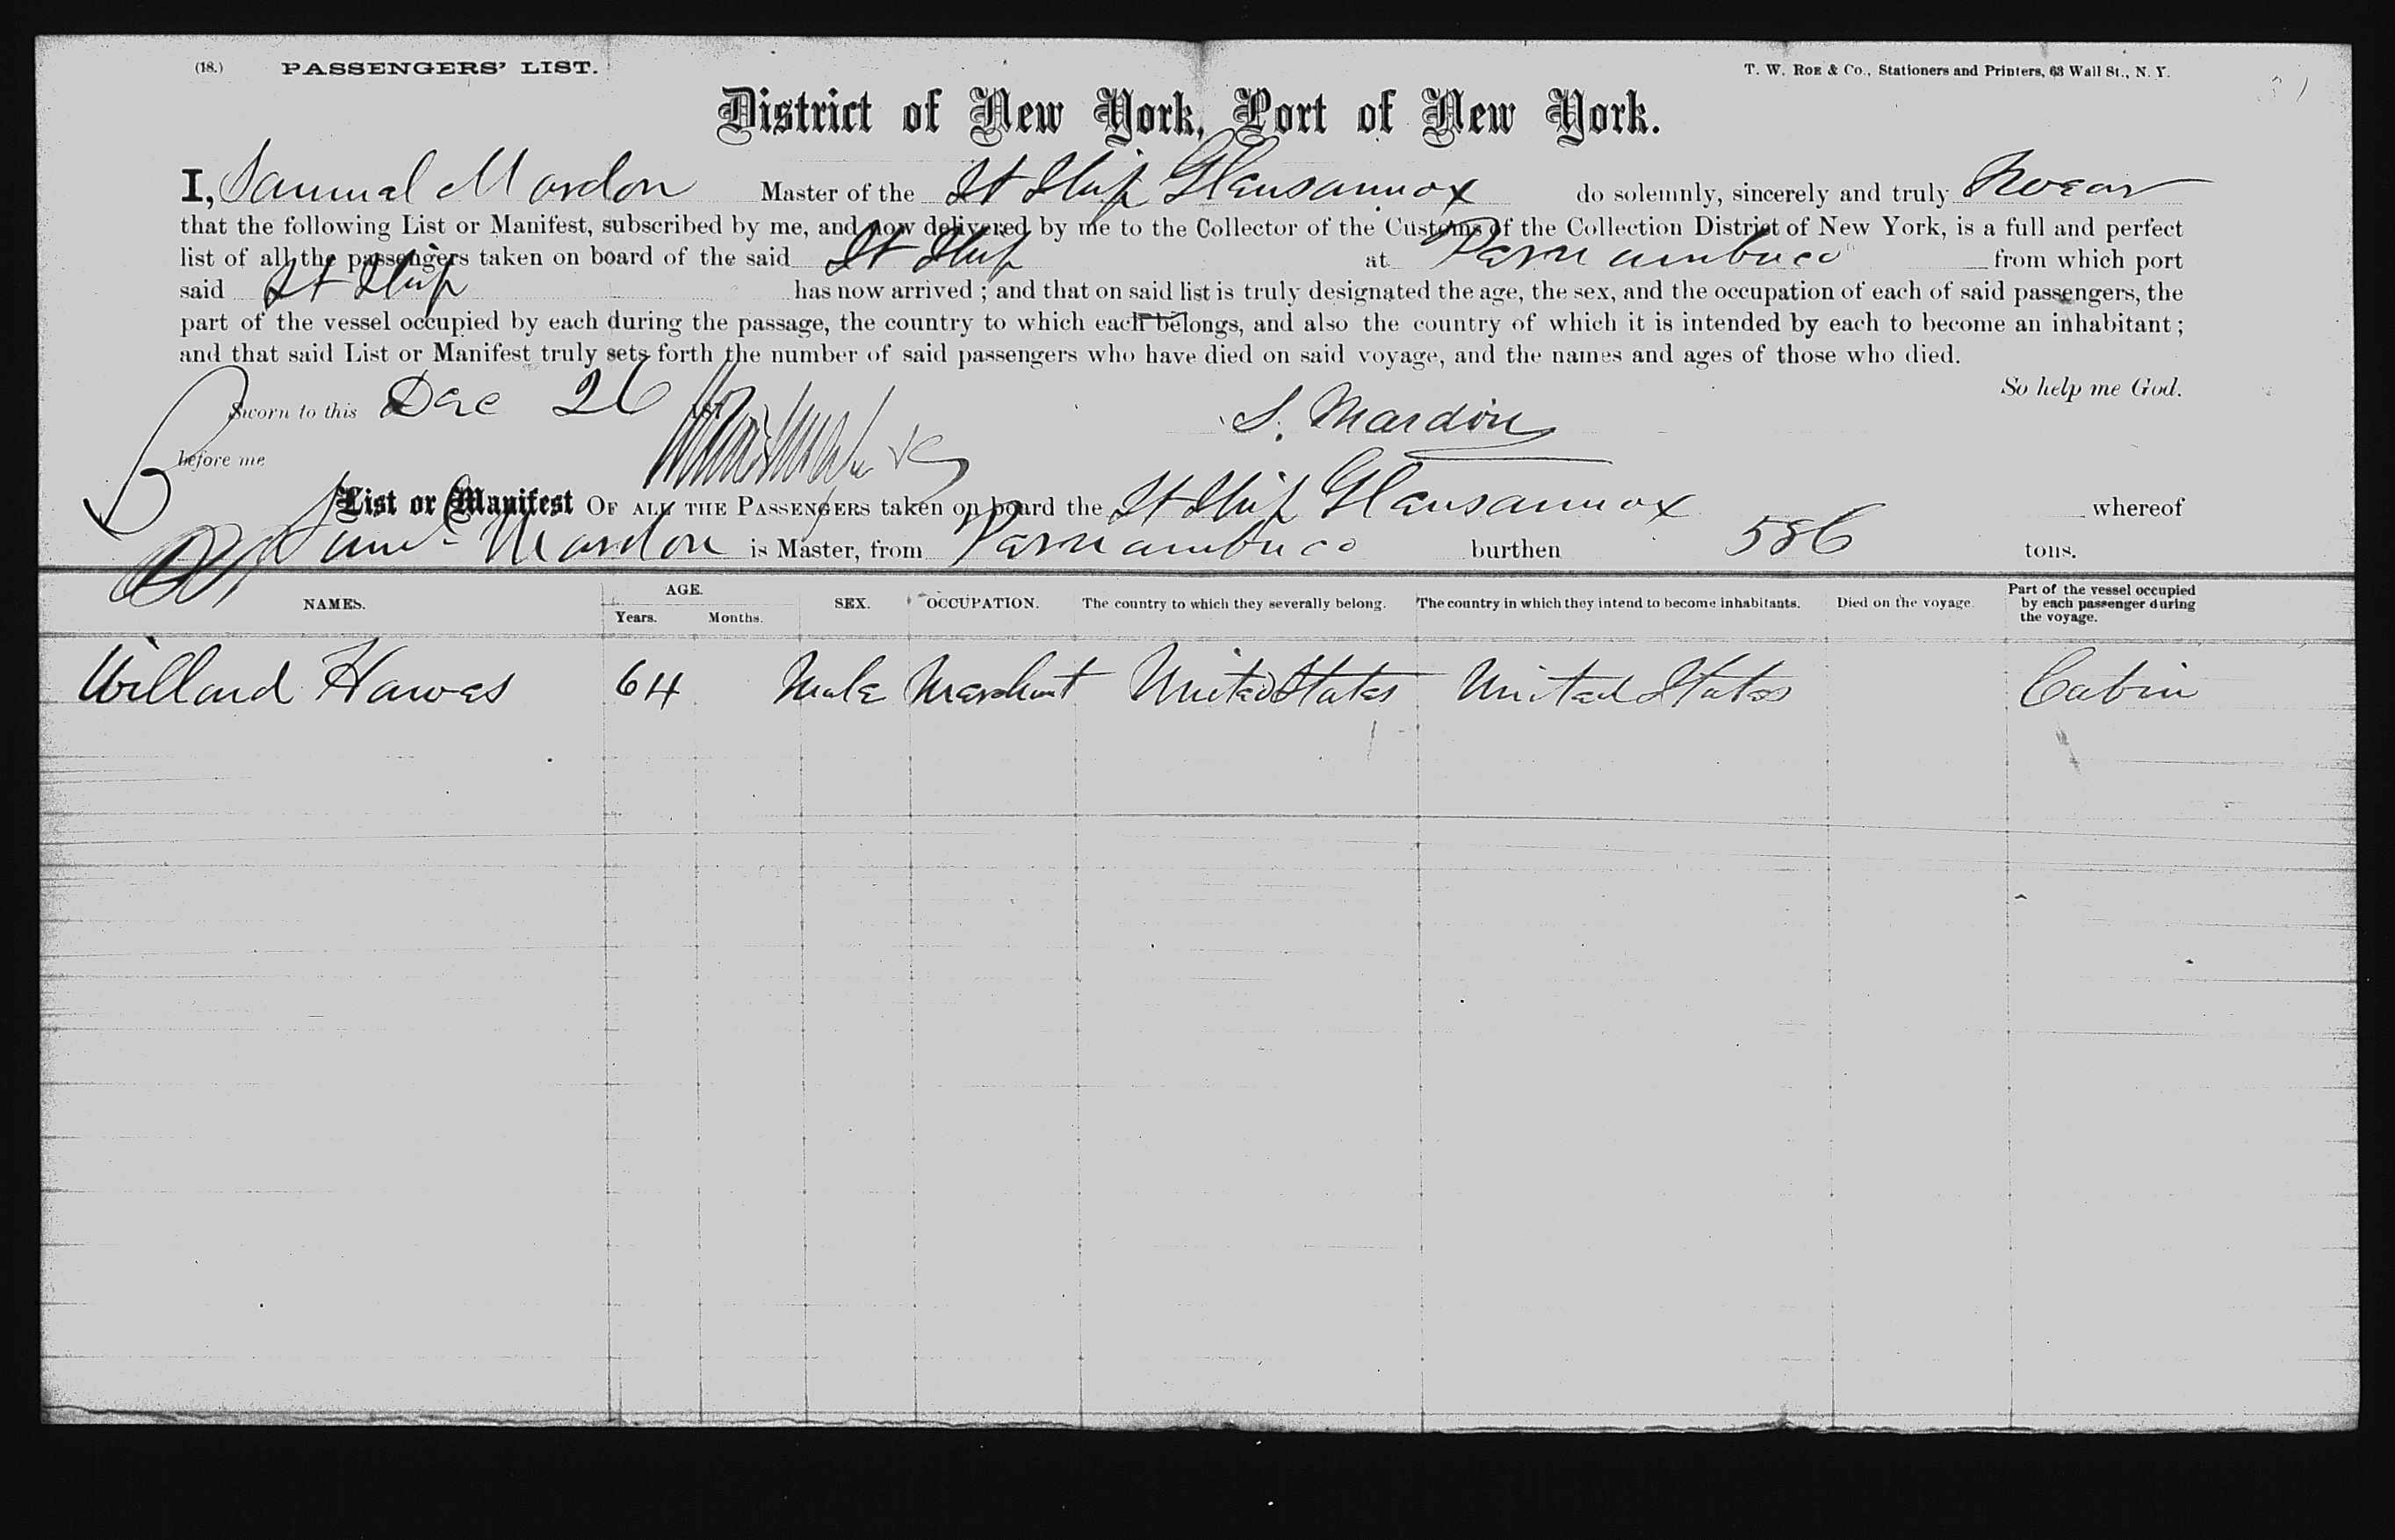 (18.) PASSENGERS' LIST. T. W. ROE & CO., Stationers and Printers, 63 Wall St., N. Y.
District of New York, Port of New York.
I, Samual Mardon Master of the St Ship Glansannox do solemnly, sincerely and truly Swear
that the following List or Manifest, subscribed by me, and now delivered by me to the Collector of the Customs of the Collection District of New York, is a full and perfect
list of all the passengers taken on board of the said St Ship at Parnambuco from which port
said St Ship has now arrived ; and that on said list is truly designated the age, the sex, and the occupation of each of said passengers, the
part of the vessel occupied by each during the passage, the country to which each belongs, and also the country of which it is intended by each to become an inhabitant ;
and that said List or Manifest truly sets forth the number of said passengers who have died on said voyage, and the names and ages of those who died.
So help me God.
Sworn to this Dec 26
S. Mardon
before me
List or Manifest OF ALL THE PASSENGERS taken on board the St Ship Glansannox whereof
Saml Mardon is Master, from Parnambuco burthen 586 tons.
NAMES. AGE. Years. Months. SEX. OCCUPATION. The country to which they severally belong. The country in which they intend to become inhabitants. Died on the voyage. Part of the vessel occupied by each passenger during the voyage.
Willard Hawes 64 Male Merchant United States United States Cabin